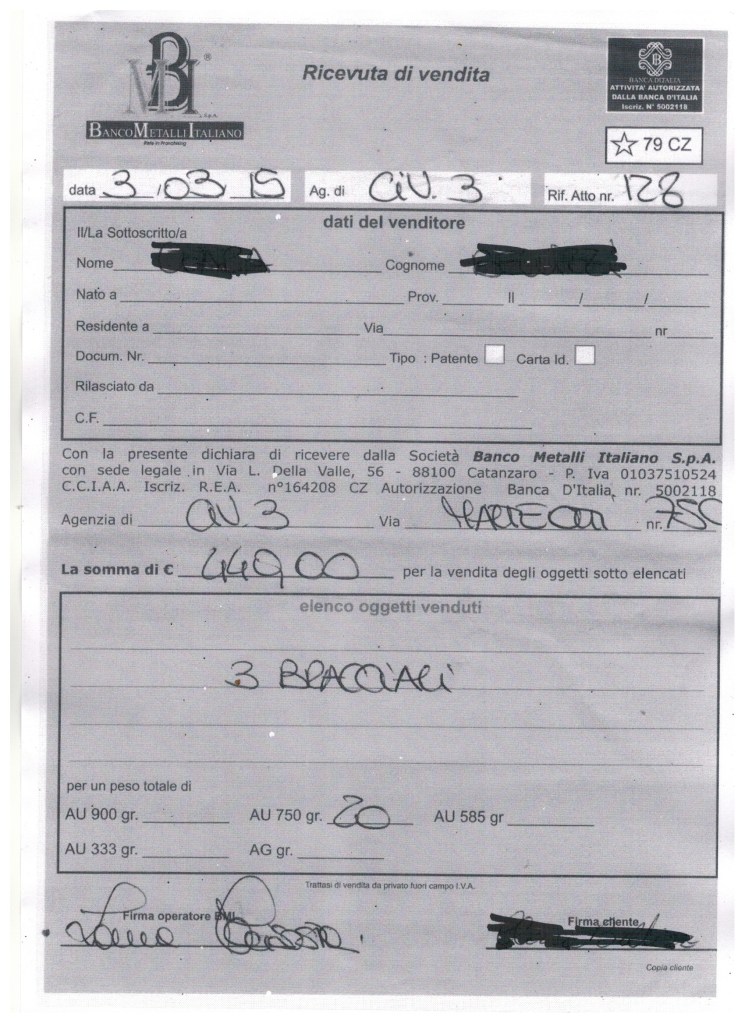 BMI ® S.p.A.
BANCO METALLI ITALIANO
Rete in Franchising
Ricevuta di vendita
BANCA D'ITALIA
ATTIVITA' AUTORIZZATA
DALLA BANCA D'ITALIA
Iscriz. N° 5002118
79 CZ
data 3 /03/ 15 Ag. di CIV. 3 Rif. Atto nr. 128
dati del venditore
Il/La Sottoscritto/a
Nome Cognome
Nato a Prov. Il / /
Residente a Via nr
Docum. Nr. Tipo : Patente Carta Id.
Rilasciato da
C.F.
Con la presente dichiara di ricevere dalla Società Banco Metalli Italiano S.p.A.
con sede legale in Via L. Della Valle, 56 - 88100 Catanzaro - P. Iva 01037510524
C.C.I.A.A. Iscriz. R.E.A. n°164208 CZ Autorizzazione Banca D'Italia, nr. 5002118
Agenzia di CIV. 3 Via MATTEOTTI nr.
La somma di € 440,00 per la vendita degli oggetti sotto elencati
elenco oggetti venduti
3 BRACCIALI
per un peso totale di
AU 900 gr. AU 750 gr. 20 AU 585 gr
AU 333 gr. AG gr.
Trattasi di vendita da privato fuori campo I.V.A.
Firma operatore BMI Firma cliente
Copia cliente